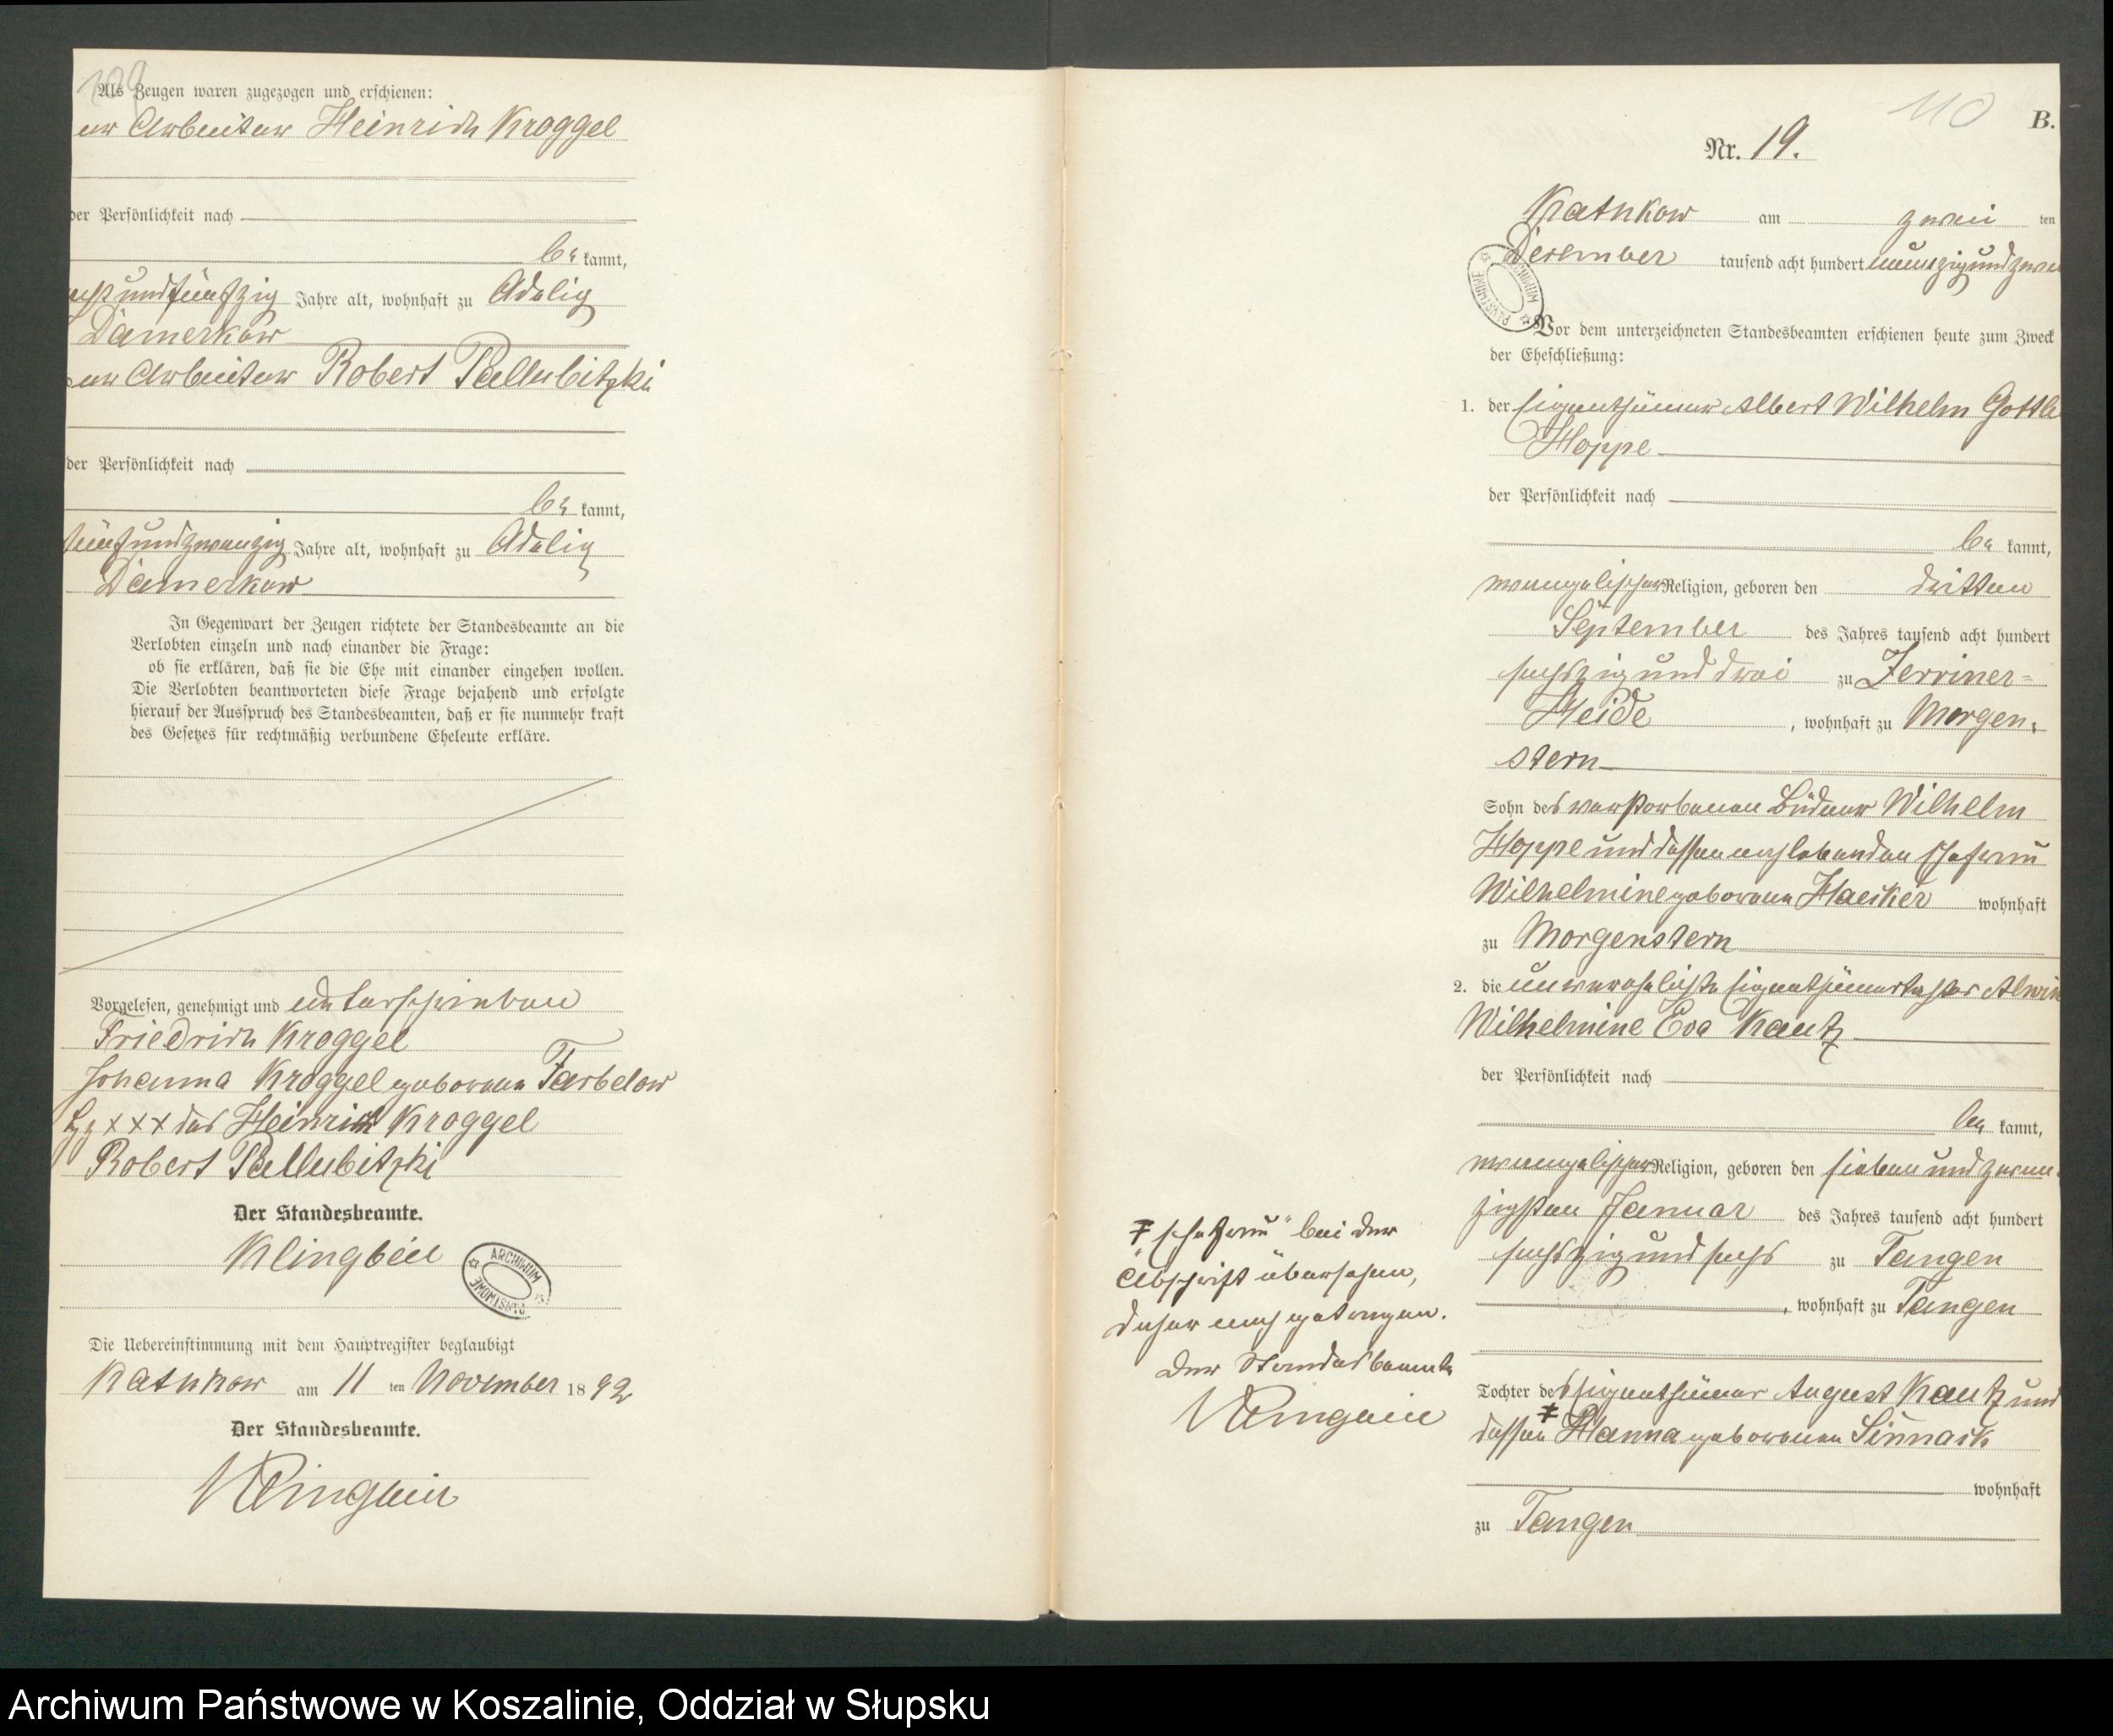 109
Als Zeugen waren zugezogen und erschienen:
er Arbeiter Heinrich Kroggel
der Persönlichkeit nach
be kannt,
undfünfzig Jahre alt, wohnhaft zu Adelig
Damerkow
er Arbeiter Robert Pallubitzki
der Persönlichkeit nach
be kannt,
fünfundzwanzig Jahre alt, wohnhaft zu Adelig
Damerkow
In Gegenwart der Zeugen richtete der Standesbeamte an die
Verlobten einzeln und nach einander die Frage:
ob sie erklären, daß sie die Ehe mit einander eingehen wollen.
Die Verlobten beantworteten diese Frage bejahend und erfolgte
hierauf der Ausspruch des Standesbeamten, daß er sie nunmehr kraft
des Gesetzes für rechtmäßig verbundene Eheleute erkläre.
Vorgelesen, genehmigt und unterschrieben
Friedrich Kroggel
Johanna Kroggel geborene Tarbelow
Hz +++ des Heinrich Kroggel
Robert Pallubitzki
Der Standesbeamte.
Klingbeil
ARCHIWUM PAŃSTWOWE
Die Uebereinstimmung mit dem Hauptregister beglaubigt
Kathkow am 11 ten November 1892
Der Standesbeamte.
Klingbeil
110
B.
Nr. 19.
Kathkow am zwei ten
Dezember tausend acht hundert neunzig und zwei
ARCHIWUM PAŃSTWOWE
Vor dem unterzeichneten Standesbeamten erschienen heute zum Zweck
der Eheschließung:
1. der Eigenthümer Albert Wilhelm Gottl
Hoppe
der Persönlichkeit nach
be kannt,
evangelischer Religion, geboren den dritten
September des Jahres tausend acht hundert
sechszig und drei zu Zerriner=
Heide, wohnhaft zu Morgen,
stern
Sohn des verstorbenen Büdner Wilhelm
Hoppe und dessen noch lebenden Ehefrau
Wilhelmine geborene Haecker wohnhaft
zu Morgenstern
2. die unverehelichte Eigenthümertochter Alwin
Wilhelmine Eva Kautz
der Persönlichkeit nach
be kannt,
evangelischer Religion, geboren den sieben und zwan,
zigsten Januar des Jahres tausend acht hundert
sechszig und sechs zu Tangen
, wohnhaft zu Tangen
Tochter des Eigenthümer August Kautz und
dessen ǂ Hanna geborenen Sinnack
wohnhaft
zu Tangen
ǂ „Ehefrau“ bei der
Abschrift übersehen,
daher nachgetragen.
Der Standesbeamte
Klingbeil
Archiwum Państwowe w Koszalinie, Oddział w Słupsku